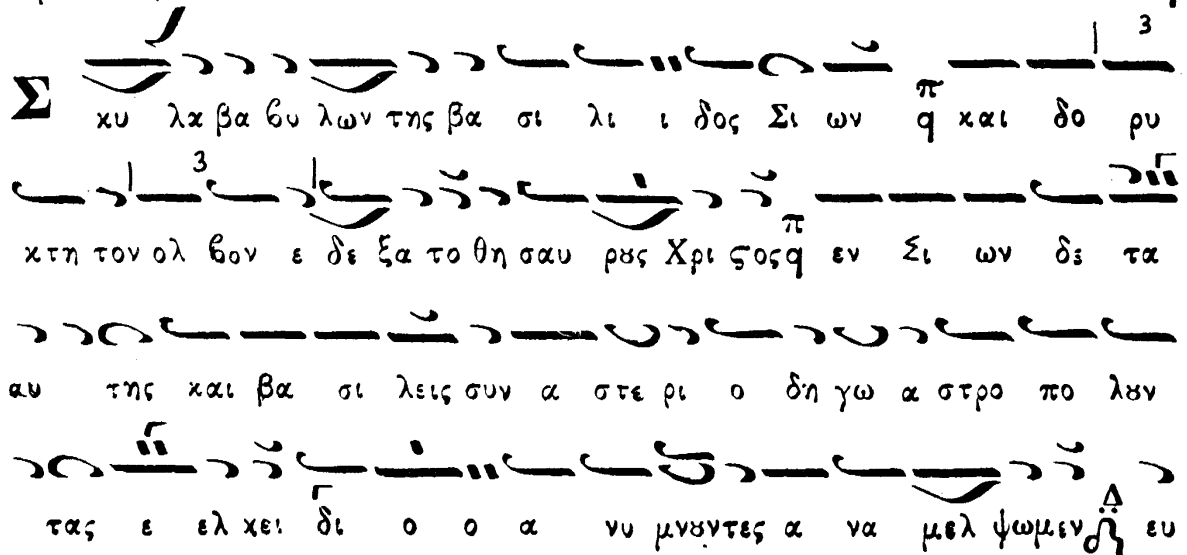 Σ κυ λα βα βυ λων της βα σι λι ι δος Σι ων π q και δο ρυ
κτη τον ολ βον ε δε ξα το θη σαυ ρȣς Χρι ϛος π q εν Σι ων δε τα
αυ της και βα σι λεις συν α στε ρι ο δη γω α στρο πο λȣν
τας ε ελ κει δι ο ο α νυ μνȣντες α να μελ ψωμεν Δ ευ